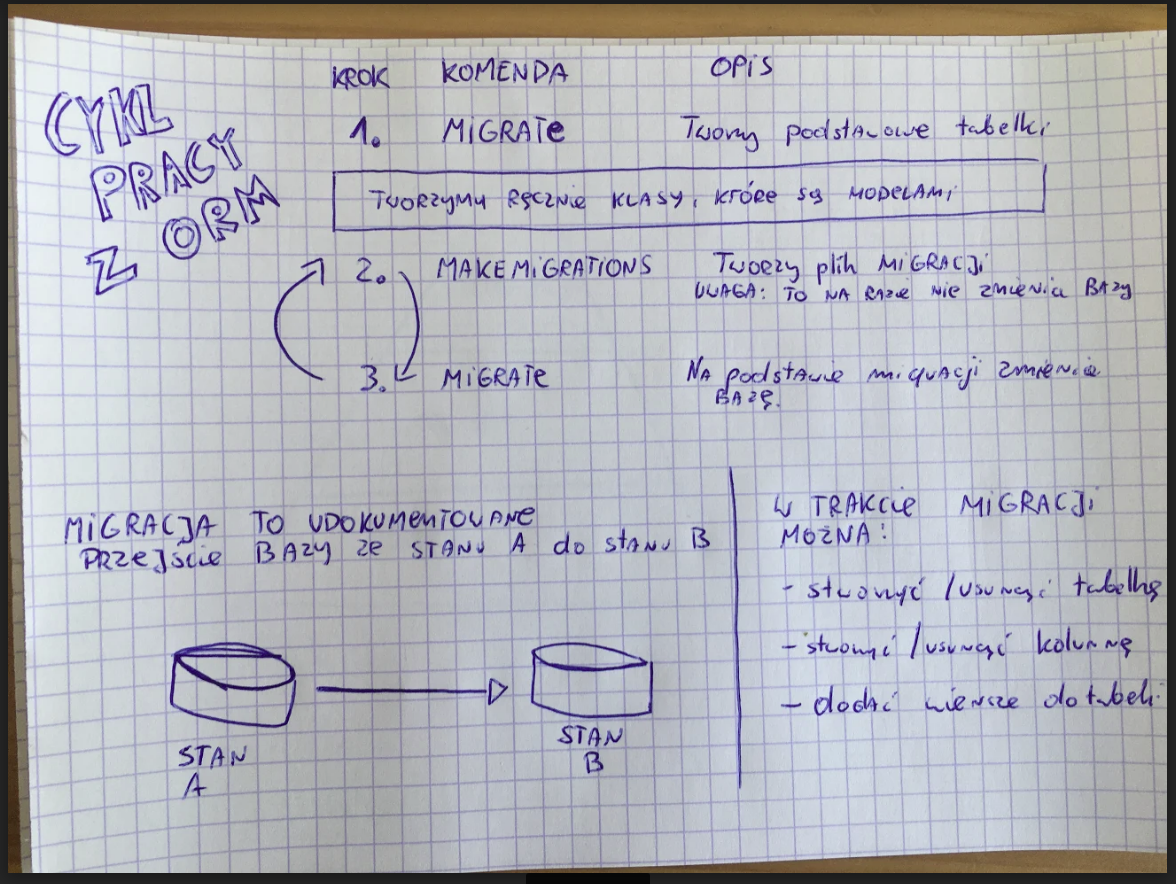 CYKL
PRACY
Z ORM
KROK KOMENDA OPIS
1. MIGRATE Tworzy podstawowe tabelki
TWORZYMY RĘCZNIE KLASY, KTÓRE SĄ MODELAMI
2. MAKEMIGRATIONS TWORZY plik MIGRACJI
UWAGA: TO NA RAZIE NIE ZMIENIA BAZY
3. MIGRATE NA podstawie migracji zmienia
BAZĘ.
MIGRACJA TO UDOKUMENTOWANE
PRZEJŚCIE BAZY ZE STANU A do STANU B
STAN
A
STAN
B
W TRAKCIE MIGRACJI
MOŻNA:
- stworzyć / usunąć tabelkę
- stworzyć / usunąć kolumnę
- dodać wiersze do tabeli